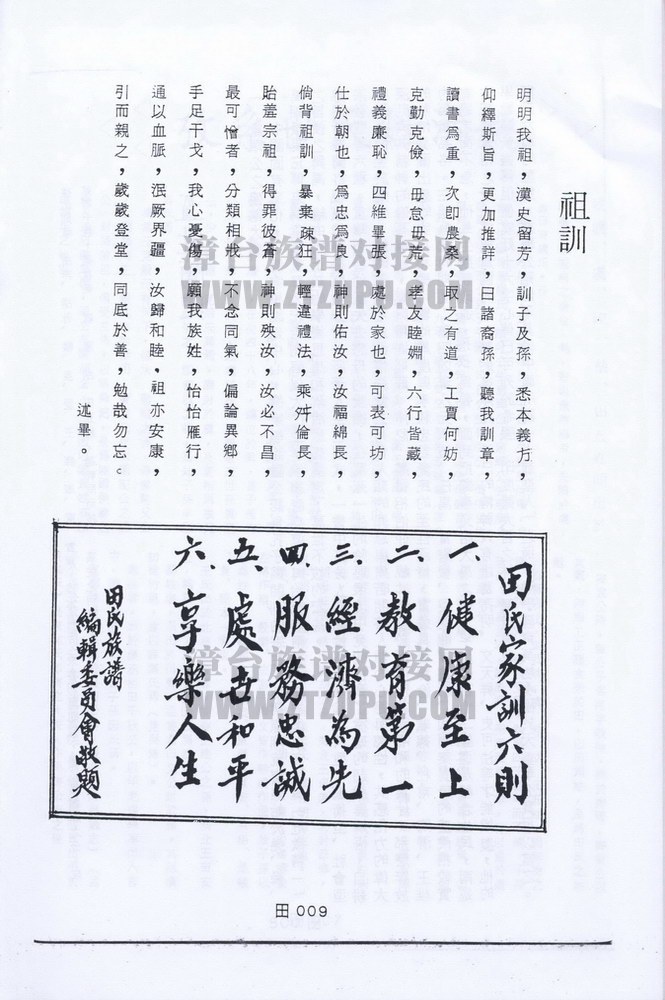 祖訓
明明我祖,漢史留芳,訓子及孫,悉本義方,
仰繹斯旨,更加推詳,曰諸裔孫,聽我訓章,
讀書爲重,次即農桑,取之有道,工賈何妨,
克勤克儉,毋怠毋荒,孝友睦婣,六行皆藏,
禮義廉恥,四維畢張,處於家也,可表可坊,
仕於朝也,爲忠爲良,神則佑汝,汝福綿長,
倘背祖訓,暴棄疎狂,輕違禮法,乖舛倫長,
貽羞宗祖,得罪彼蒼,神則殃汝,汝必不昌,
最可憎者,分類相戕,不念同氣,偏論異鄉,
手足干戈,我心憂傷,願我族姓,怡怡雁行,
通以血脈,泯厥界疆,汝歸和睦,祖亦安康,
引而親之,歲歲登堂,同底於善,勉哉勿忘。
述畢。
田氏家訓六則
一、健康至上
二、教育第一
三、經濟為先
四、服務忠誠
五、處世和平
六、享樂人生
田氏族譜
編輯委員會敬題
漳台族谱对接网
WWW.ZTZUPU.COM
漳台族谱对接网
WWW.ZTZUPU.COM
田 009